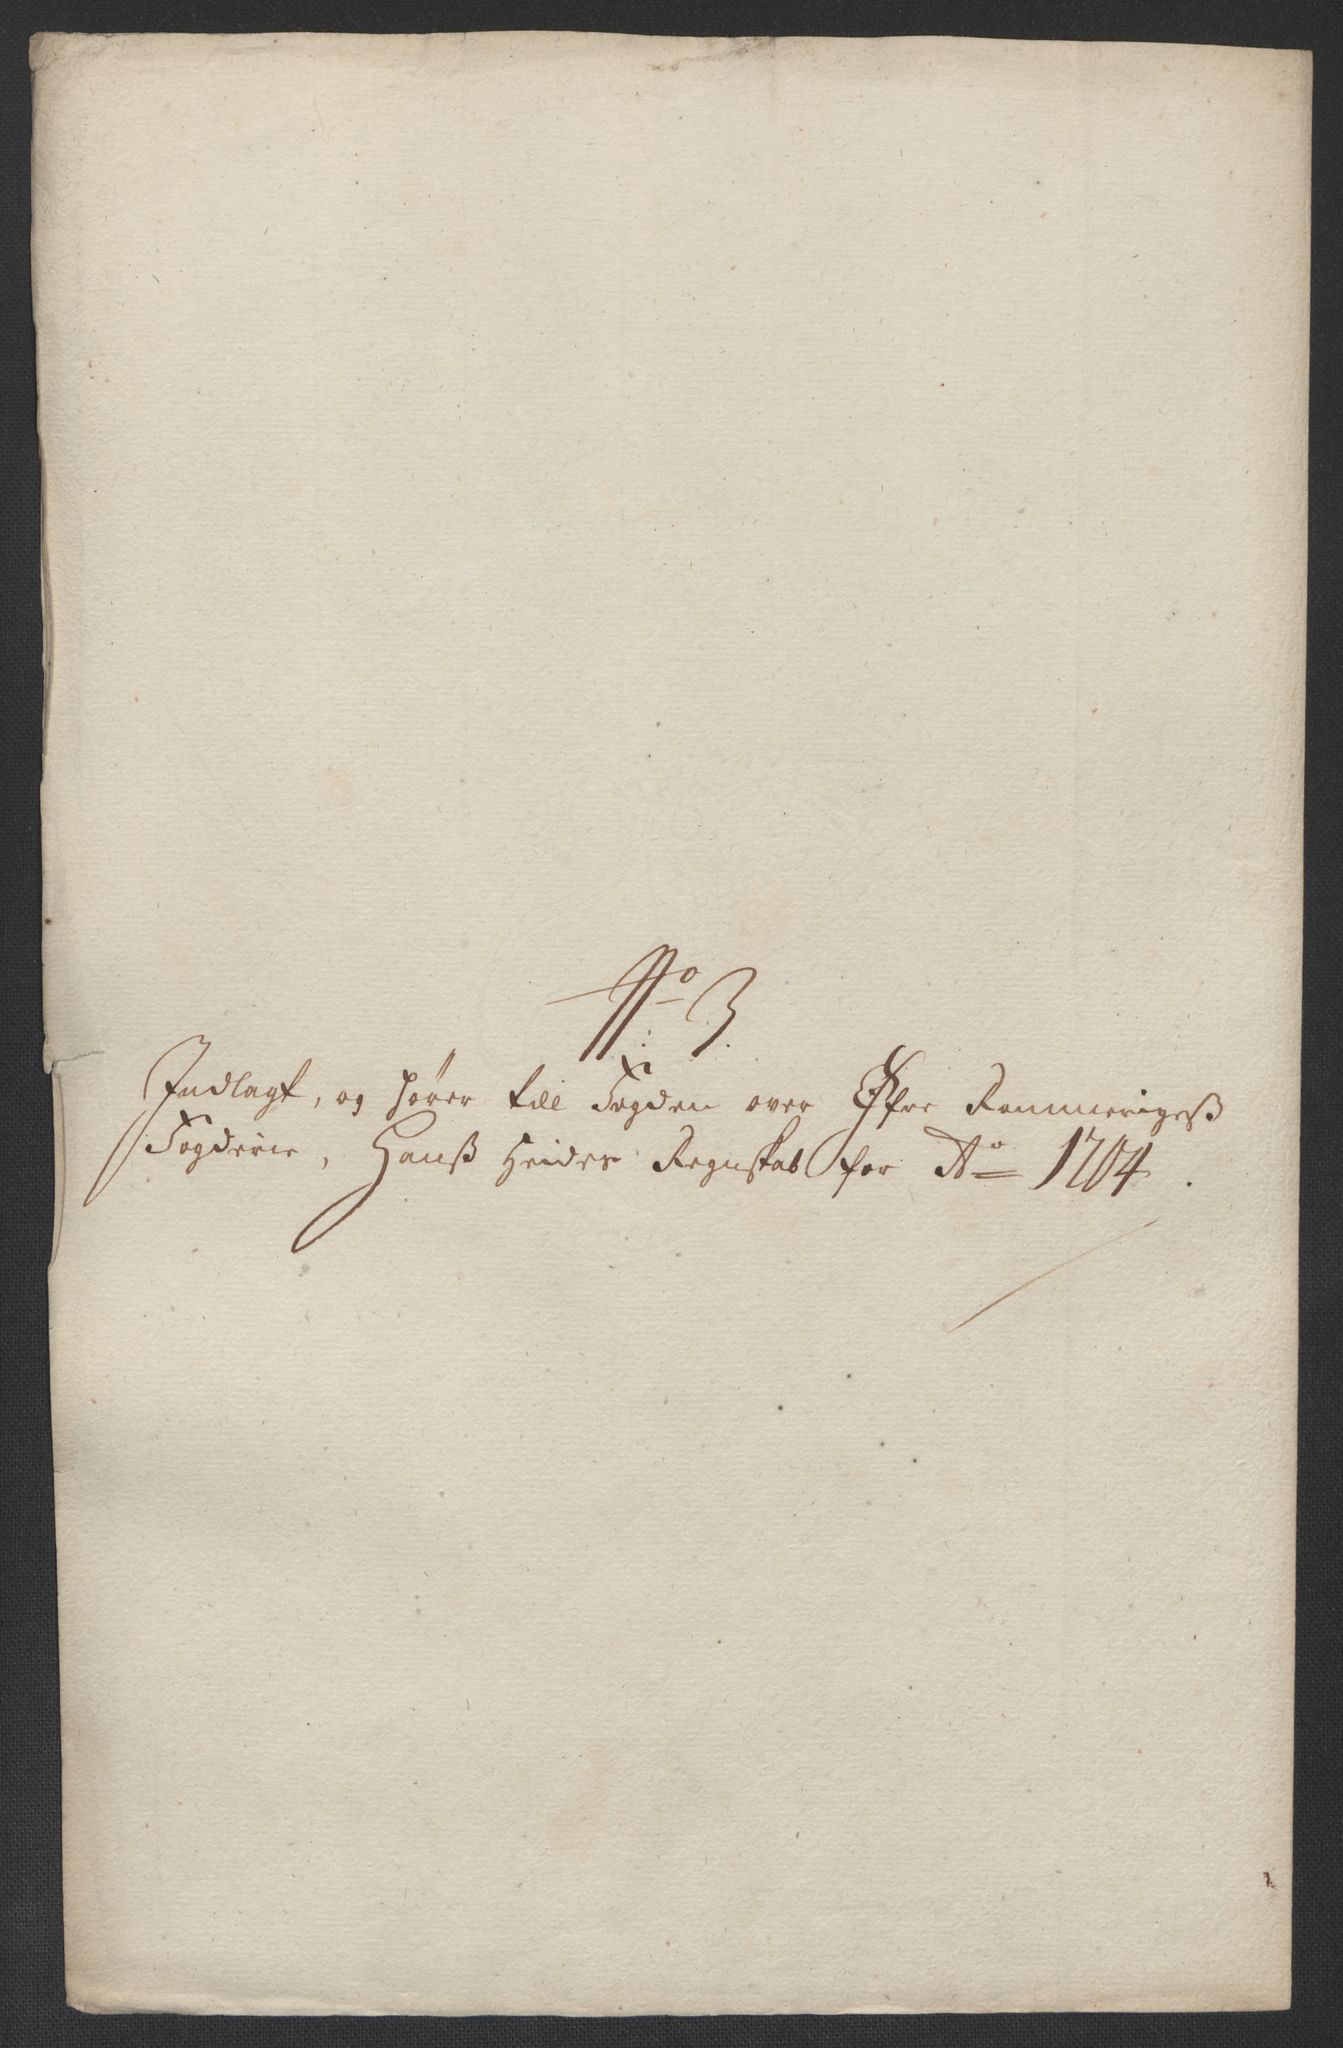 No 3.
Indlagt, og hører till Fogden over Øfre Rommerigeß
Fogderie, Hanß Heides Regnskab for Ao 1704.